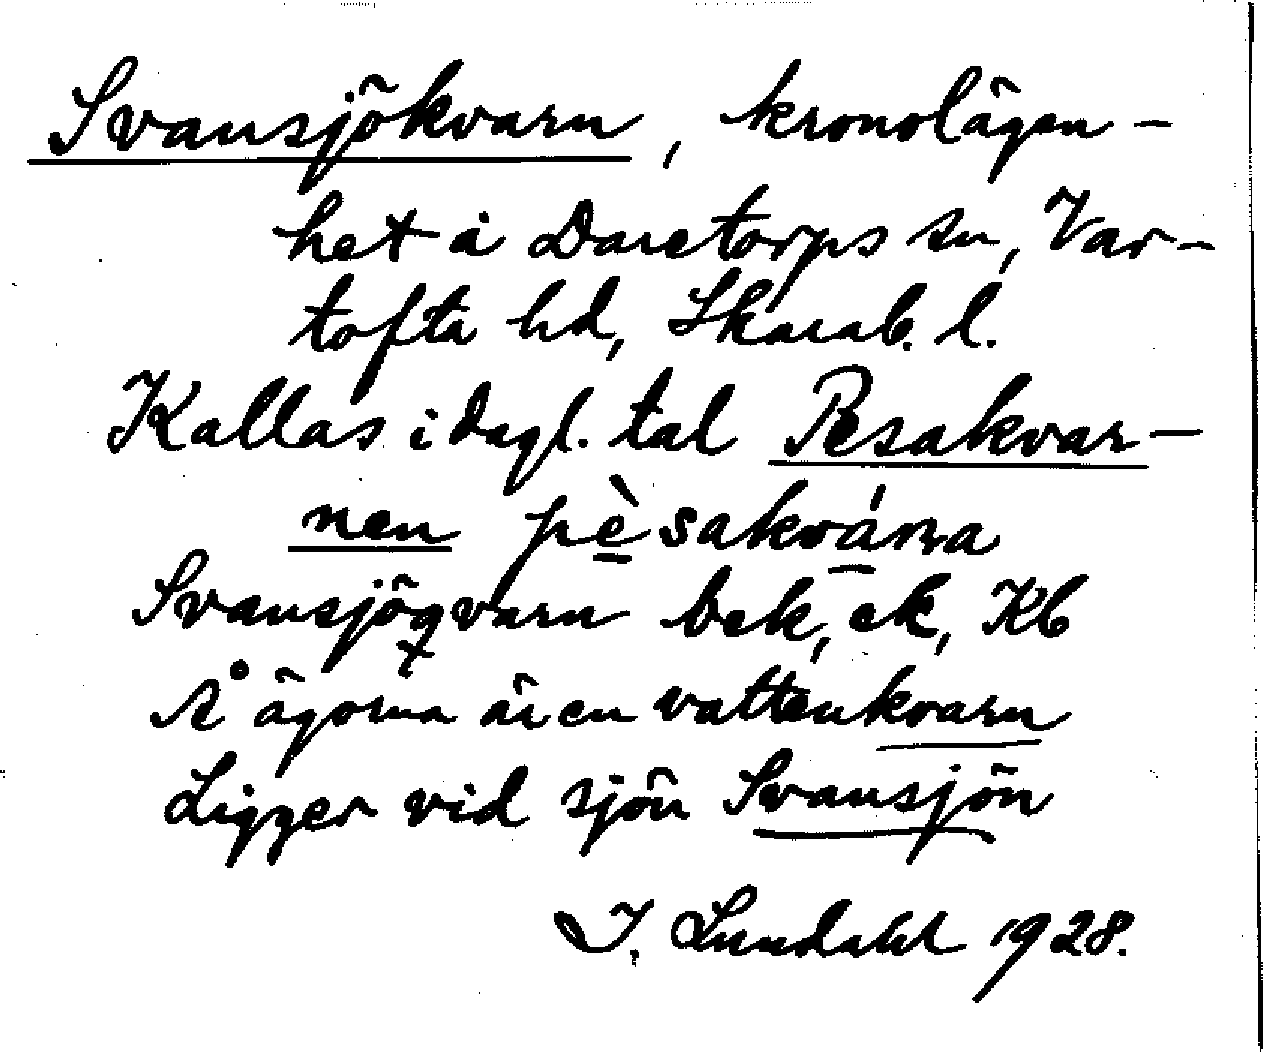 Svansjökvarn, kronolägen-
het å Daretorps sn, Var-
tofta hd, Skarab. l.
Kallas i dagl. tal Pesakvar-
nen pèsakvá​rna
Svansjöqvarn bek, ek, Kb
Å ägorna är en vattenkvarn
Ligger vid sjön Svansjön
I. Lundahl 1928.